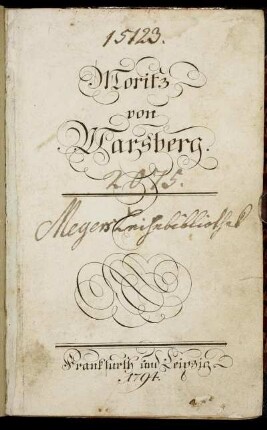 15123.
Moritz
von
Marsberg.
2075.
Meyers Leihebibliothek
Frankfurth und Leipzig.
1794.